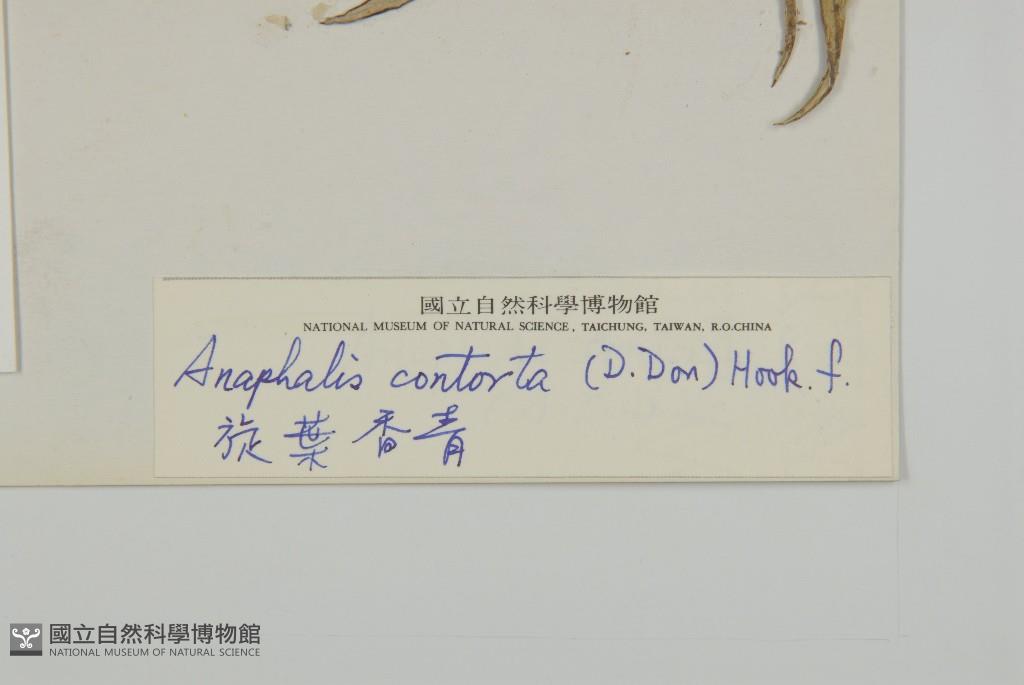 國立自然科學博物館
NATIONAL MUSEUM OF NATURAL SCIENCE, TAICHUNG, TAIWAN, R.O.CHINA
Anaphalis contorta (D.Don) Hook.f.
旋葉香青
國立自然科學博物館
NATIONAL MUSEUM OF NATURAL SCIENCE